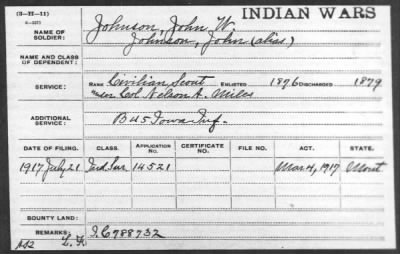 (3-H-11)
6-3373
INDIAN WARS
NAME OF SOLDIER: Johnson, John W.
Johnson, John (alias)
NAME AND CLASS OF DEPENDENT:
SERVICE: RANK Civilian Scout ENLISTED 1876 DISCHARGED 1879
under Col. Nelson A. Miles
ADDITIONAL SERVICE: B 45 Iowa Inf.
DATE OF FILING. CLASS. APPLICATION NO. CERTIFICATE NO. FILE NO. ACT. STATE.
1917 July 21 Ind Sur 14521 Mar 4, 1917 Mont
BOUNTY LAND:
REMARKS: I.C 788732